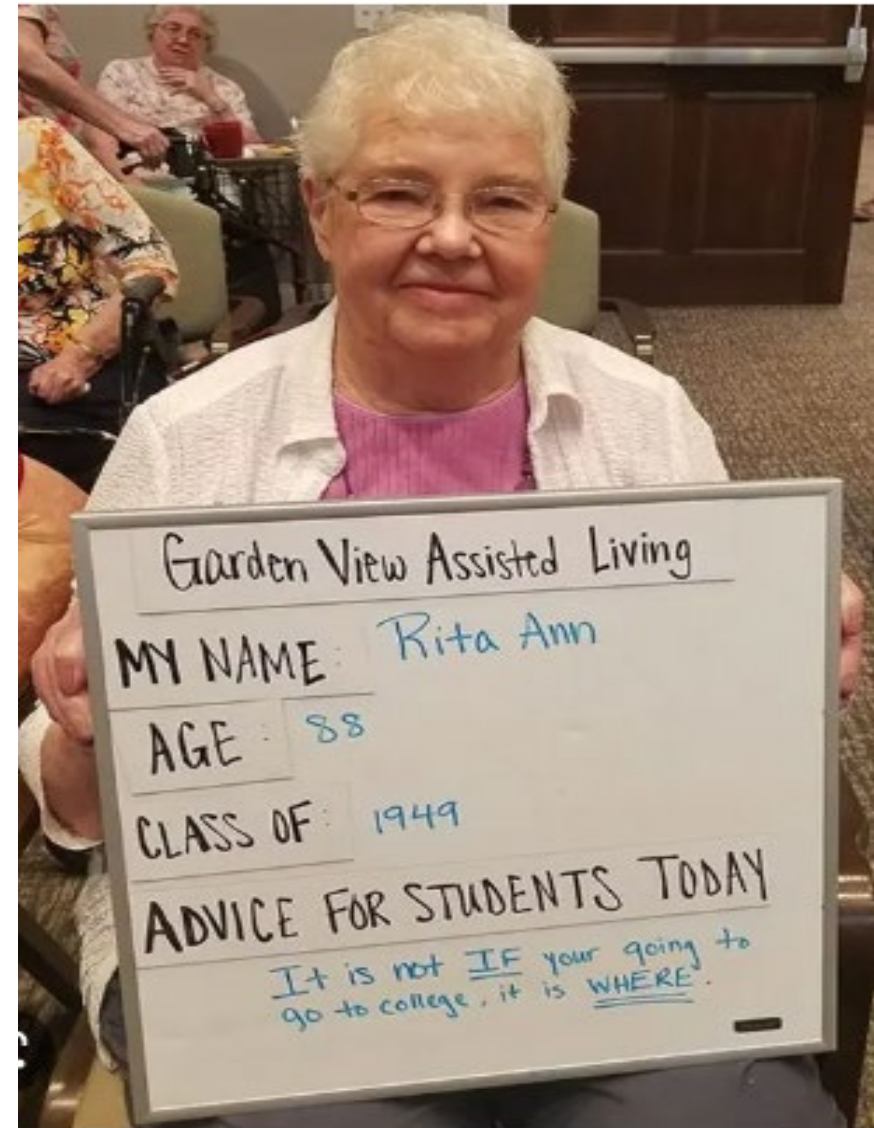 Garden View Assisted Living
MY NAME: Rita Ann
AGE: 88
CLASS OF: 1949
ADVICE FOR STUDENTS TODAY
It is not IF your going to
go to college, it is WHERE.